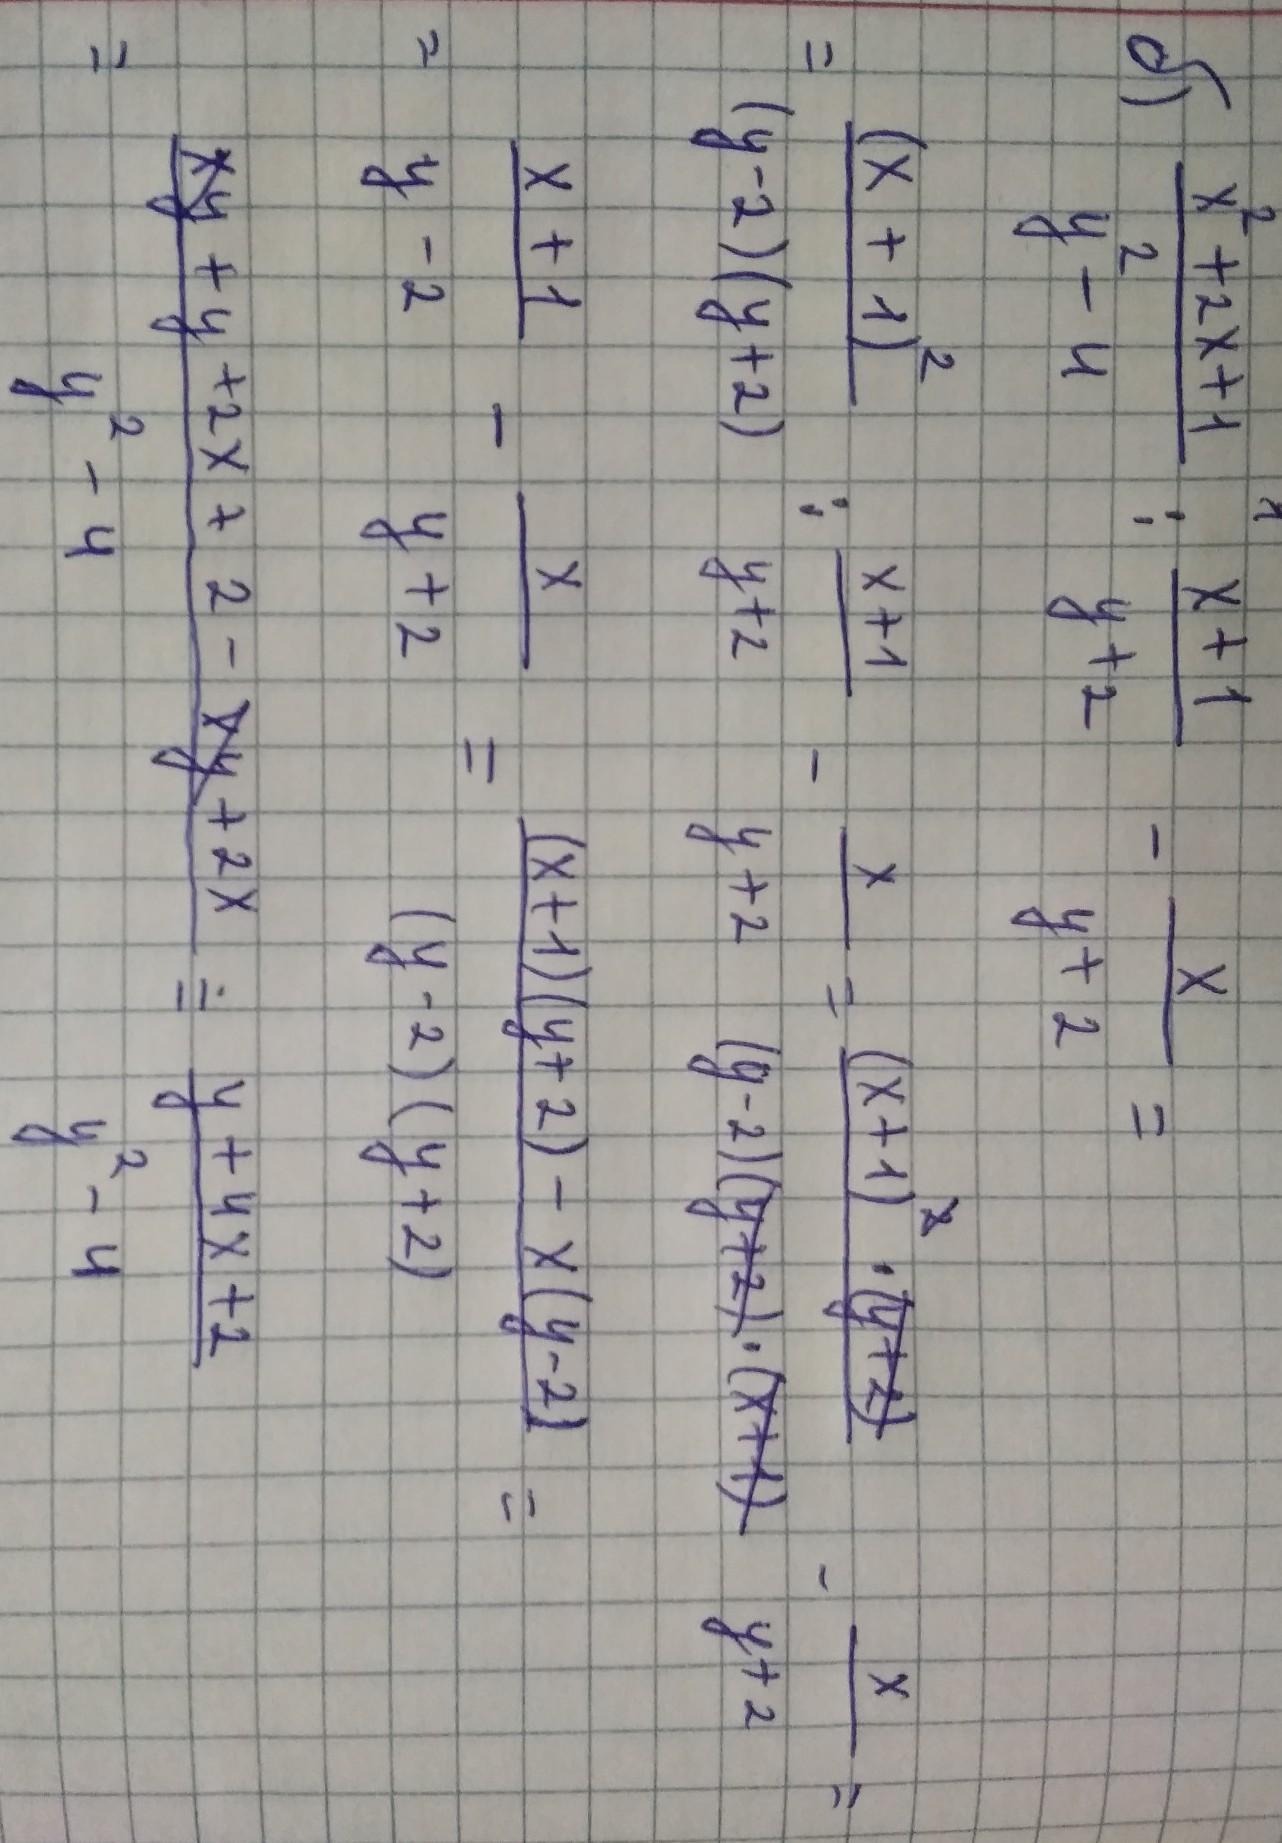 б) (x² + 2x + 1)/(y² - 4) : (x + 1)/(y + 2) - x/(y + 2) =
= (x + 1)²/((y - 2)(y + 2)) : (x + 1)/(y + 2) - x/(y + 2) = ((x + 1)² · (y + 2))/((y - 2)(y + 2) · (x + 1)) - x/(y + 2) =
= (x + 1)/(y - 2) - x/(y + 2) = ((x + 1)(y + 2) - x(y - 2))/((y - 2)(y + 2)) =
= (xy + y + 2x + 2 - xy + 2x)/(y² - 4) = (y + 4x + 2)/(y² - 4)